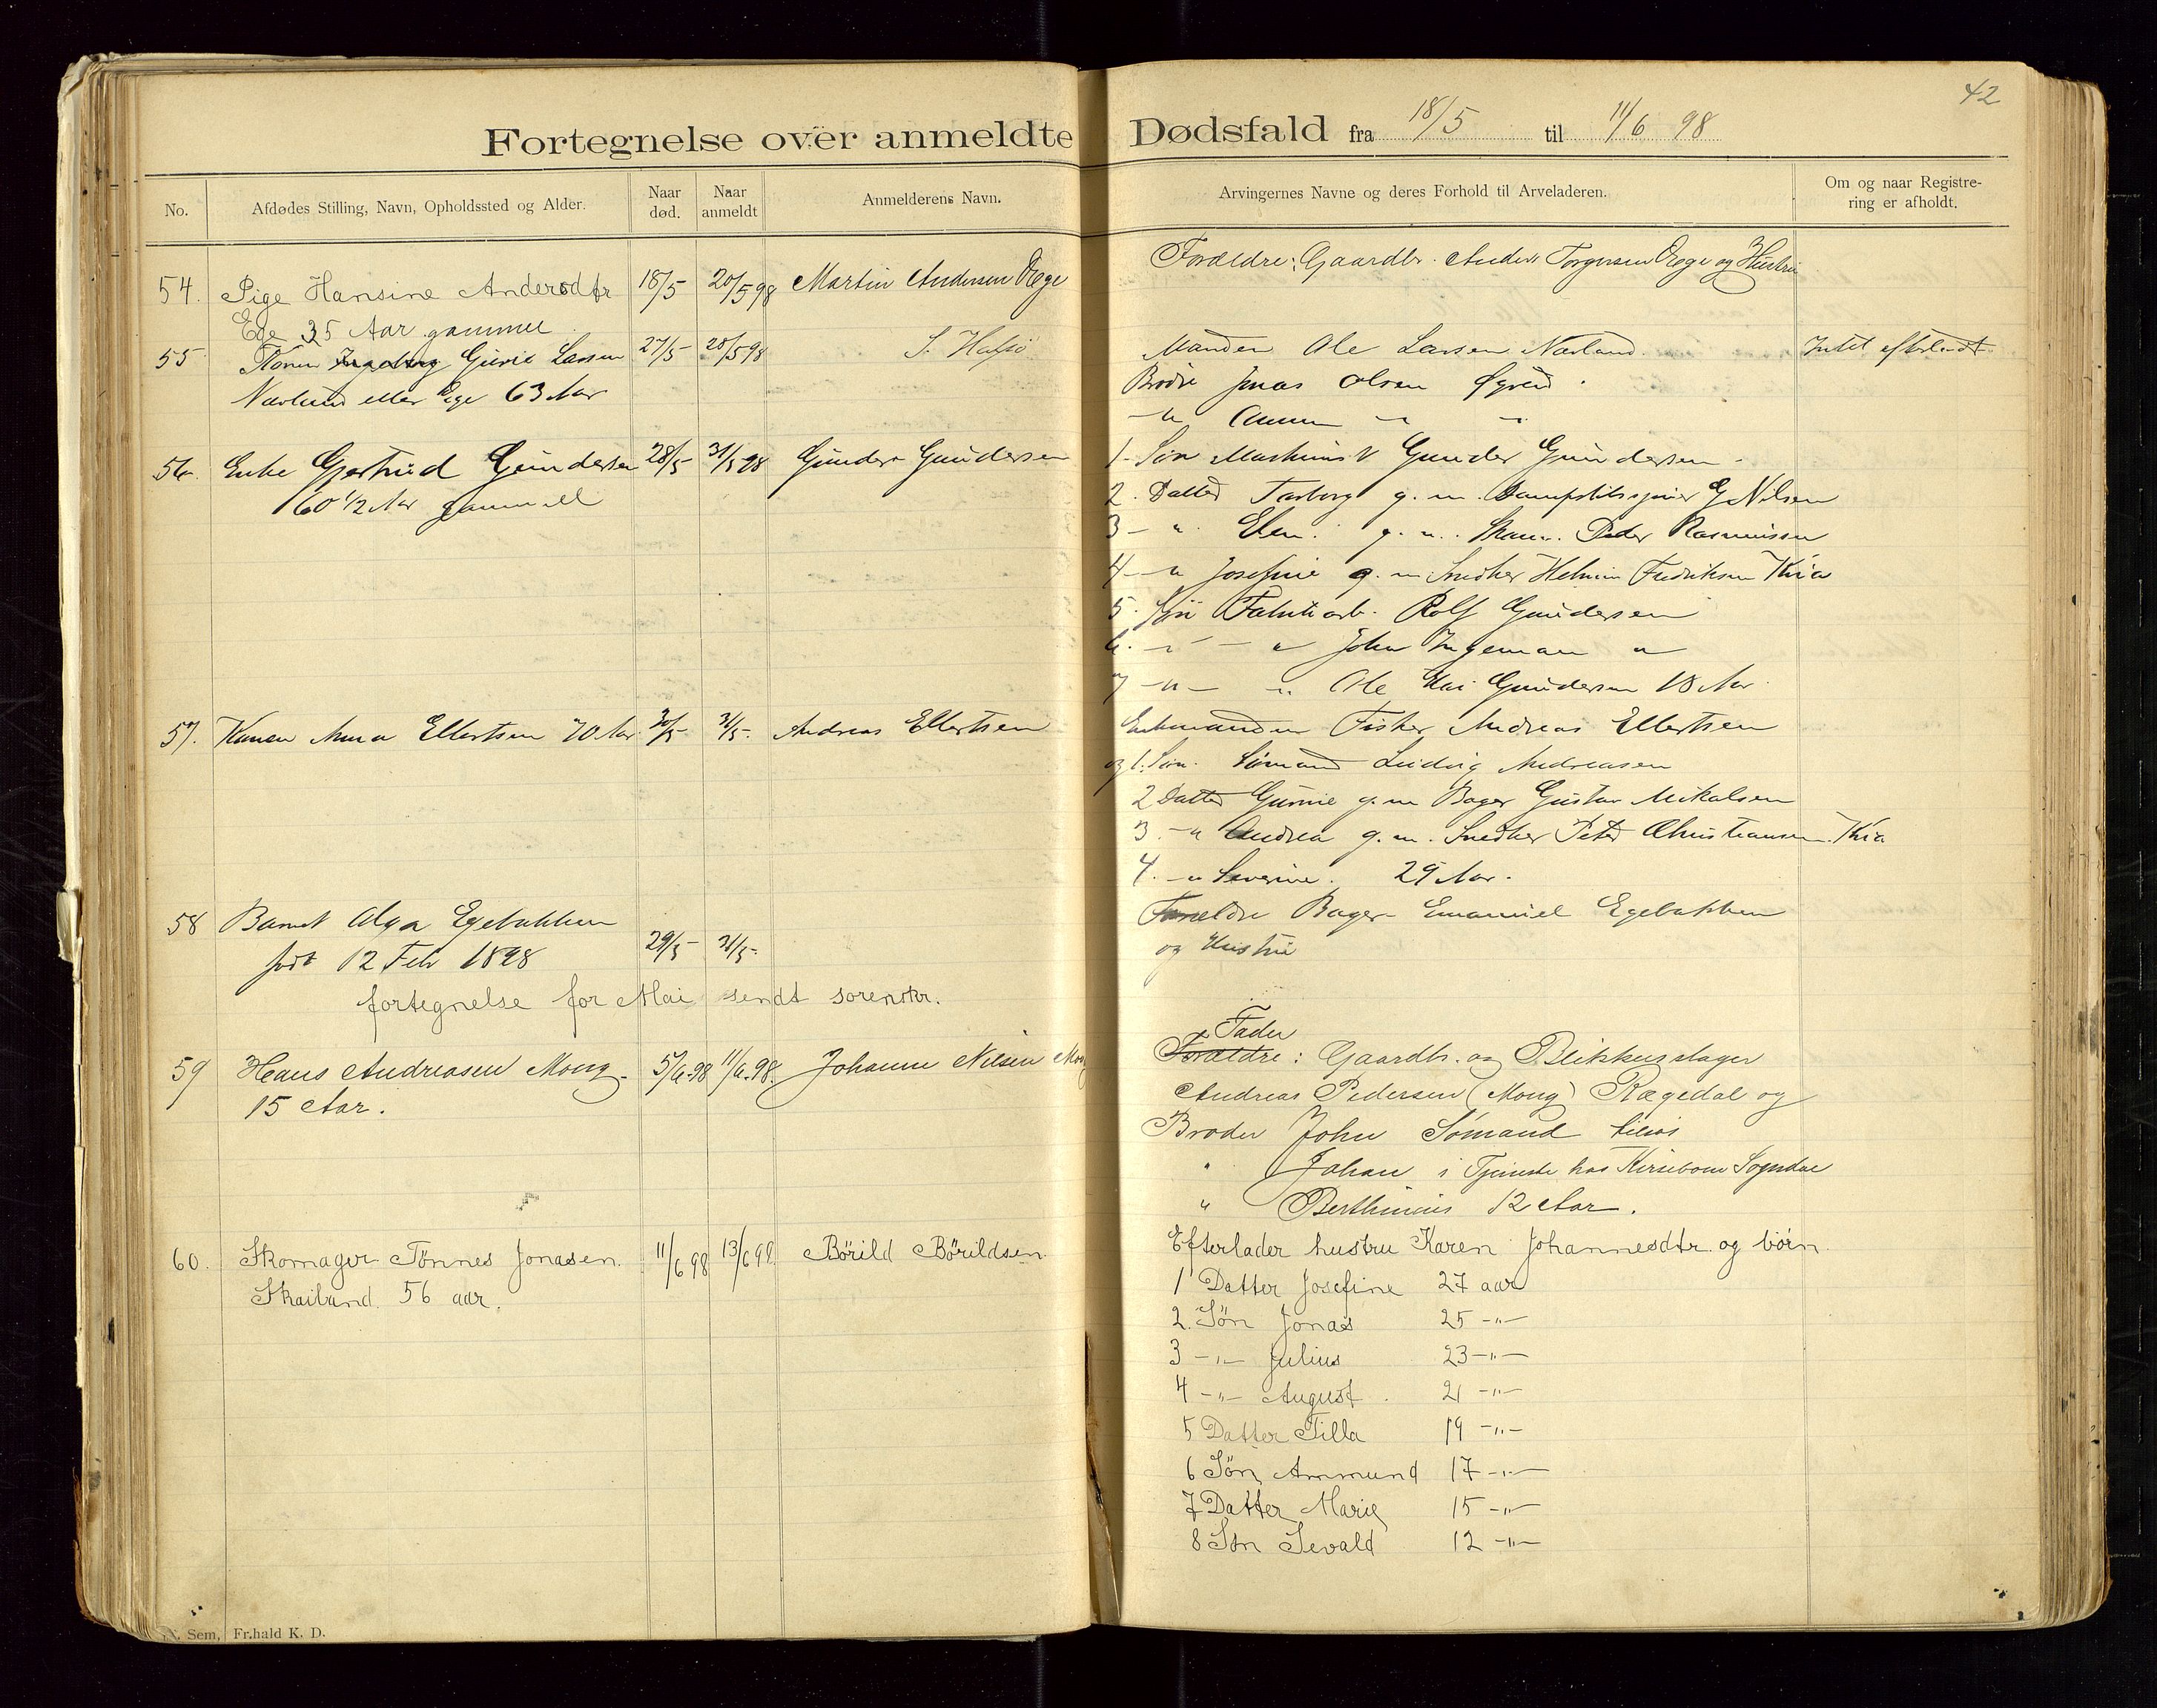 42
Fortegnelse over anmeldte Dødsfald fra 18/5 til 11/6 98
No.
Afdødes Stilling, Navn, Opholdssted og Alder.
Naar død.
Naar anmeldt
Anmelderens Navn.
Arvingernes Navne og deres Forhold til Arveladeren.
Om og naar Registre-
ring er afholdt.
54. Pige Hansine Andersdtr 18/5 20/5 98 Martin Andersen Ege
Ege 35 Aar gammel
Forældre: Gaardbr. Anders Torgersen Ege og Hustru
55 Konen Ingeborg Gurie Larsen 27/5 28/5 98 S. Hafsö
Nærland eller Ege 63 Aar
Manden Ole Larsen Nærland. Intet efterladt
Brodre Jonas Olsen
56. Enke Gjertrud Gundersen 28/5 31/5 98 Gunder Gundersen
60 1/2 Aar gammel
1. Søn Maskinist Gunder Gundersen
2. Datter Torborg g. m. E Nilsen
3 - " Elen. g. m. Peder Rasmussen
4 - " Josefine g. m Snedker Fredriksen Kria
5. Søn Fabrikarb. Rolf Gundersen
6. - " - " John Ingeman "
7 - " - " Ole Gundersen 18 Aar.
57. Konen Anna Ellertsen 70 Aar 30/5 31/5. Andreas Ellertsen
Enkemanden Fisker Andreas Ellertsen
og 1. Søn. Sømand Ludvig Andreasen
2 Datter Gurine g. m Bager Gustav Mikalsen
3. - " Andrea g. m. Snedker Peter Christiansen. Kria
4. - " Severine. 29 Aar.
58 Barnet Olga Egebakken
født 12 Feb 1898 29/5 31/5
Forældre Bager Emanuel Egebakken
og Hustru
fortegnelse for Mai sendt sorenskr.
59 Hans Andreasen Mong. 5/6 98 11/6 98. Johanne Nilsen Mong
15 Aar.
Fader
Forældre: Gaardbr. og Blikkenslager
Andreas Pedersen (Mong) Rægedal og
Broder John Sømand tilsös
" Johan i Tjeneste hos Kirsebom Sogndal
" Berthinius 12 Aar.
60. Skomager Tönnes Jonasen. 11/6 98 13/6 98 Börild Börildsen
Skailand. 56 aar.
Efterlader hustru Karen Johannesdtr. og börn.
1 Datter Josefine 27 aar
2. Sön Jonas 25 -"-
3 -"- Julius 23 -"-
4 -"- August. 21 -"-
5 Datter Tilla 19 -"-
6 Sön Ammund 17 -"-
7 Datter Marie 15 -"-
8 Sön Sevald 12 -"-
N. Sem, Fr.hald K. D.